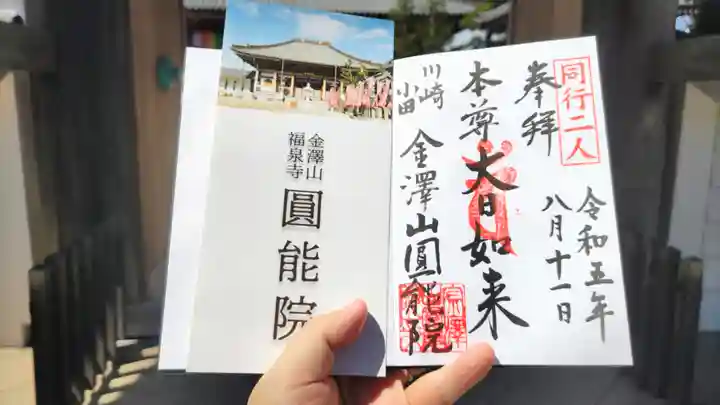 金澤山
福泉寺
圓能院
同行二人
奉拝
令和五年
八月十一日
本尊 大日如来
川崎
小田
金澤山圓能院